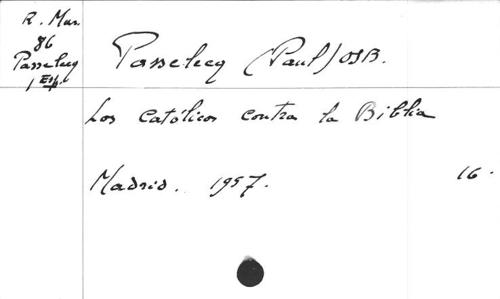 R. Mar.
86
Passelecq
1 Esp.
Passelecq (Paul) OSB.
Los católicos contra la Biblia
Madrid. 1957. 16.